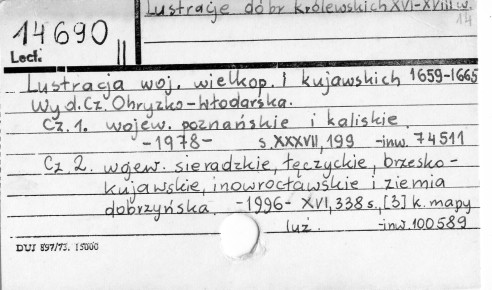 Lustracje dóbr królewskich XVI-XVIII w.
14
14690
II
Lect.
Lustracja woj. wielkop. i kujawskich 1659-1665
Wyd. Cz. Ohryzko-Włodarska.
Cz. 1. wojew. poznańskie i kaliskie
-1978- s. XXXVII, 199 -inw. 74511
Cz. 2. wojew. sieradzkie, łęczyckie, brzesko-
kujawskie, inowrocławskie i ziemia
dobrzyńska. -1996- XVI, 338 s., [3] k. mapy
luź. -inw. 100589
DUJ 897/73. 15000